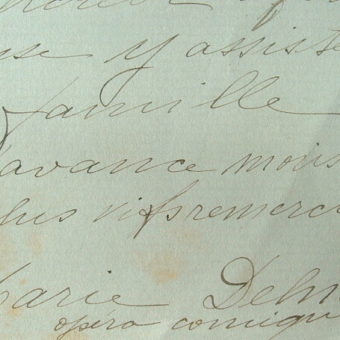 y assiste
famille
avance mons
plus vifs remerci
Marie Deln
opéra comiqu